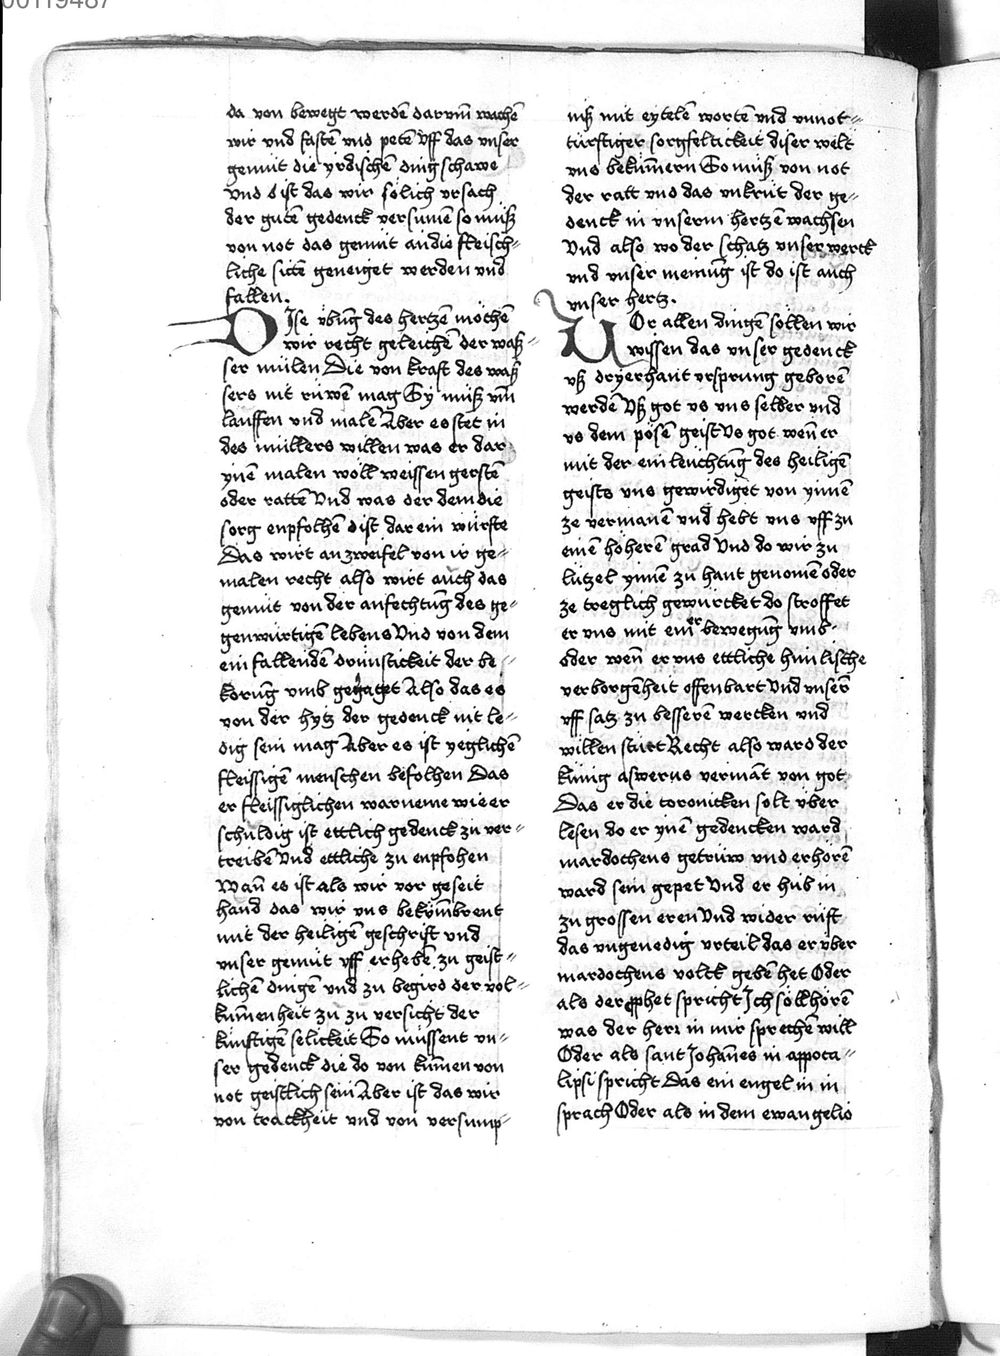 00119487
da von bewegt werdē darvm̄ wachē
wir vnd fastē vnd petē vff das vnser
gemüt die yrdischē ding schawe
Vnd d ist das wir sölich vrsach
der gutē gedenck versumen so muß
von not das gemüt an die fleisch-
liche sittē geneiget werden vnd
fallen.
DIse vbūg des hertzē möchē
wir recht geleichē der waß-
ser mülen Die von kraft des waß
sers nit rüwē mag Sy muß vm̄
lauffen vnd malē Aber es stet in
des müllers willen was er dar
ynē malen wöll weissen gerstē
oder rattē Vnd was der dem die
sorg enpfolhē d ist dar ein würfte
Das wirt an zweifel von ir ge-
malen recht also wirt auch das
gemüt von der anfechtūg des ge-
genwürtigē lebens Vnd von dem
ein fallendē drünstickeit der be-
korūg vmb geyaget Also das es
von der hytz der gedenck nit le-
dig sein mag Aber es ist yeglichē
fleissigē menschen befolhen Das
er fleissiglichen warneme wie er
schuldig ist ettlich gedenck zu ver-
treibē Vnd ettliche zu enpfohen
Wañ es ist als wir vor geseit
hand das wir vns bekum̄brent
mit der heiligē geschrift vnd
vnser gemüt vff er hebē zu geist-
lichē dingē vnd zu begird der vol-
kum̄enheit zu zu versicht der
künftigē selickeit So müssent vn-
ser gedenck die do von kum̄en von
not geistlich sein Aber ist das wir
von trackheit vnd von versump-
niß mit eytelē wortē vnd vnnot-
türftiger sorgfeltickeit diser welt
vns bekūmern So muß von not
der ratt vnd das vnkrut der ge-
denck in vnserm hertzē wachsen
Vnd also wo der schatz vnser werck
vnd vnser meinūg ist do ist auch
vnser hertz.
VOr allen dingē söllen wir
wissen das vnser gedenck
vß dryerhant vrsprung geborē
werdē Vß got vs vns selber vnd
vs dem pösē geist Vs got weñ er
mit der einleuchtūg des heiligē
geists vns gewirdiget von ynnē
ze vermanē vnd hebt vns vff zu
einē höherē grad Vnd do wir zu
lützel ynnē zu hant genom̄e oder
ze treglich gewürcket do stroffet
er vns mit einer bewegūg vmb.
oder weñ er vns ettliche himlische
verborgēheit offenbart Vnd vnserē
vff satz zu besserē wercken vnd
willen stürt Recht also ward der
künig aswerus vermāt von got
Das er die coronicken solt vber
lesen do er ynē gedencken ward
mardocheus getrüw vnd erhörē
ward sein gepet Vnd er hub in
zu grossen eren Vnd wider rüft
das vngenedig vrteil das er vber
mardocheus volck gebē het Oder
als der prophet spricht Ich söll hörē
was der herr in mir sprechē will
Oder als sant Johānes in appoca-
lipsi spricht Das ein engel in in
sprach Oder als in dem ewangelio